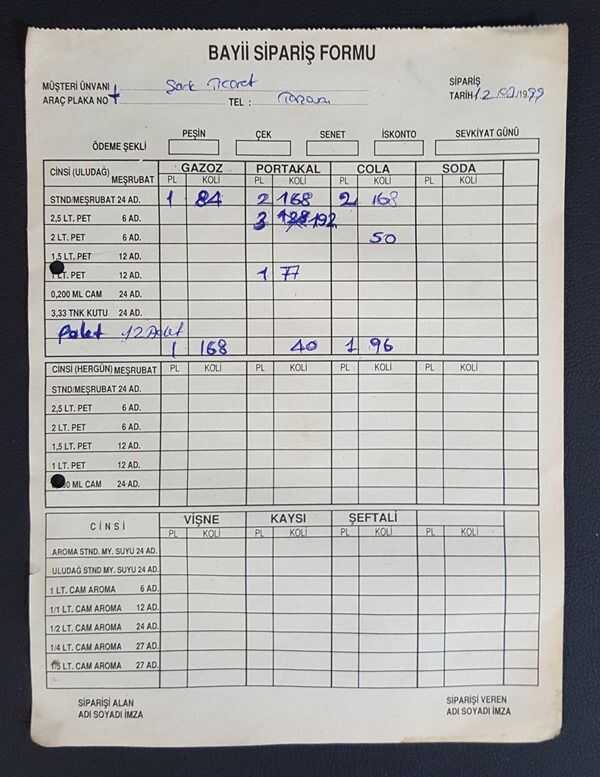 BAYİİ SİPARİŞ FORMU
MÜŞTERİ ÜNVANI Şark Ticaret SİPARİŞ
ARAÇ PLAKA NO TEL : TARİH 12 /1999
ÖDEME ŞEKLİ PEŞİN ÇEK SENET İSKONTO SEVKİYAT GÜNÜ
CİNSİ (ULUDAĞ) MEŞRUBAT GAZOZ PORTAKAL COLA SODA
PL KOLİ PL KOLİ PL KOLİ PL KOLİ
STND/MEŞRUBAT 24 AD. 1 84 2 168 2 168
2,5 LT. PET 6 AD. 3 128 192
2 LT. PET 6 AD. 50
1,5 LT. PET 12 AD.
1 LT. PET 12 AD. 1 77
0,200 ML CAM 24 AD.
3,33 TNK KUTU 24 AD.
Palet 12 Adet
1 168 40 1 96
CİNSİ (HERGÜN) MEŞRUBAT PL KOLİ PL KOLİ PL KOLİ PL KOLİ
STND/MEŞRUBAT 24 AD.
2,5 LT. PET 6 AD.
2 LT. PET 6 AD.
1,5 LT. PET 12 AD.
1 LT. PET 12 AD.
ML CAM 24 AD.
CİNSİ VİŞNE KAYSI ŞEFTALİ
PL KOLİ PL KOLİ PL KOLİ PL KOLİ
AROMA STND. MY. SUYU 24 AD.
ULUDAĞ STND MY. SUYU 24 AD.
1 LT. CAM AROMA 6 AD.
1/1 LT. CAM AROMA 12 AD.
1/2 LT. CAM AROMA 24 AD.
1/4 LT. CAM AROMA 27 AD.
1/5 LT. CAM AROMA 27 AD.
SİPARİŞİ ALAN SİPARİŞİ VEREN
ADI SOYADI İMZA ADI SOYADI İMZA